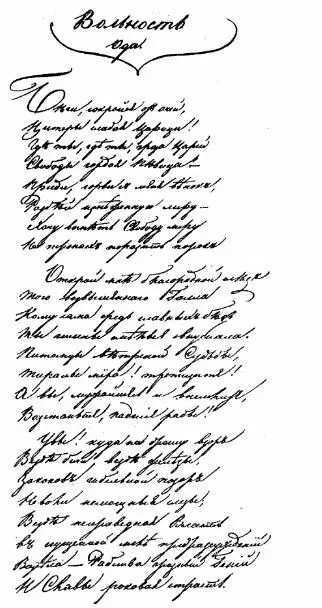 Вольность
Ода.
Бѣги, сокройся отъ очей,
Цитеры слабая Царица!
Гдѣ ты, гдѣ ты, гроза Царей
Свободы гордая пѣвица? —
Приди, сорви съ меня вѣнокъ,
Разбей изнѣженную лиру —
Хочу воспѣть Свободу міру
На тронахъ поразить порокъ
Открой мнѣ благородной слѣдъ
Того возвышеннаго Галла
Кому сама средь славныхъ бѣдъ
Ты гимны смѣлые внушала.
Питомцы вѣтреной Судьбы,
Тираны міра! трепещите!
А вы, мужайтесь и внемлите,
Возстаньте, падшіе рабы!
Увы! куда ни брошу взоръ
Вездѣ бичи, вездѣ желѣзы,
Законовъ гибельный позоръ
Неволи немощныя слезы;
Вездѣ неправедная Власть
въ сгущенной мглѣ предразсужденій
Возсѣла — Рабства грозный Геній
И Славы роковая страсть.